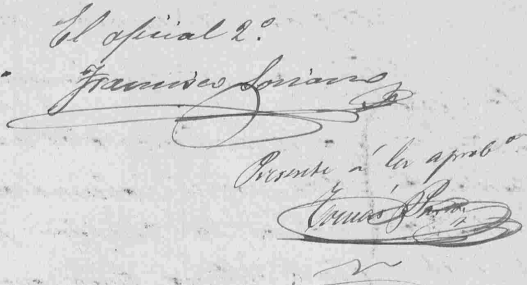 El oficial 2.º
Francisco Soriano
Presente á la aprob.ⁿ
Tomás